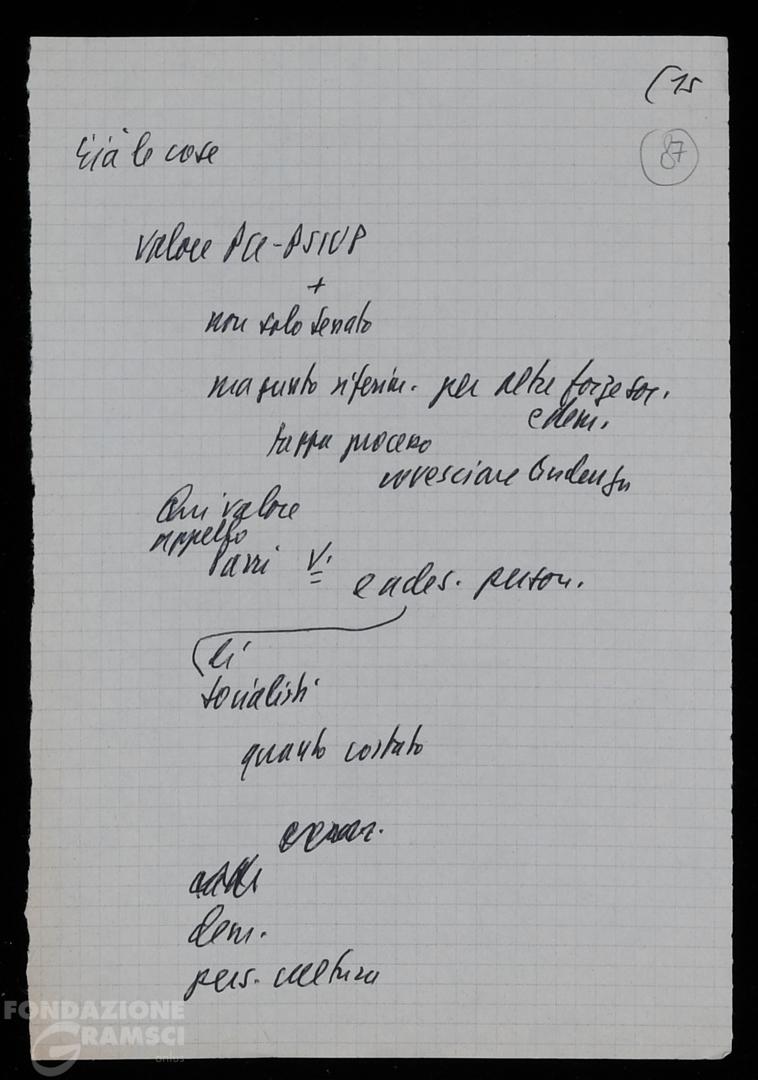 (15
87
Già le cose
valore PCI-PSIUP
+
non solo Senato
ma punto riferim. per altre forze soc.
e dem.
tappa processo
rovesciare tendenza
Qui valore
appello
Parri V.
e ades. person.
di
socialisti
quanto costato
dem.
pers. cultura
FONDAZIONE
GRAMSCI
onlus